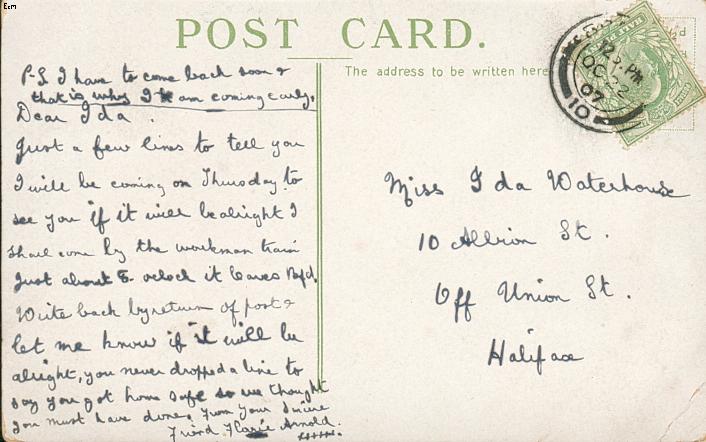 Ecm
POST CARD.
The address to be written here
P-S I have to come back soon &
that is why I am coming early.
Dear Ida.
Just a few lines to tell you
I will be coming on Thursday to
see you if it will be alright I
shall come by the workman train
Just about 8 oclock it leaves Bfd.
Write back by return of post &
let me know if it will be
alright, you never dropped a line to
say you got home safe so we thought
you must have done, From your Sincere
Friend Arnold.
xxxxx.
12 PM
OC 22
07
10
Miss Ida Waterhouse
10 Albion St.
Off Union St.
Halifax